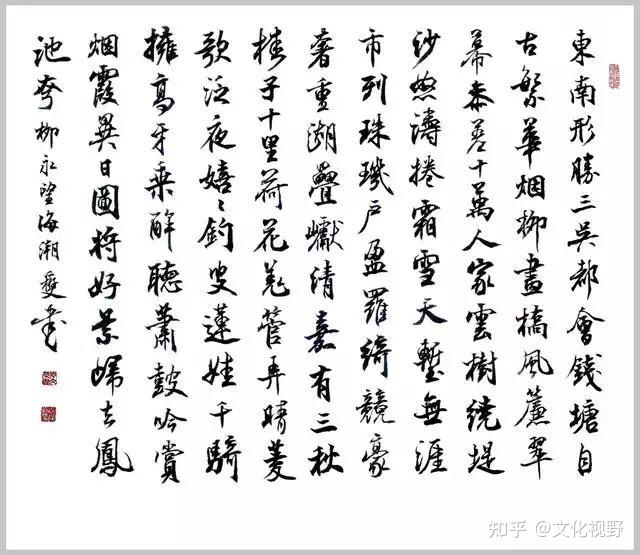 東南形勝三吳都會錢塘自
古繁華烟柳畫橋風簾翠
幕參差十萬人家雲樹繞堤
沙怒濤捲霜雪天塹無涯
市列珠璣户盈羅綺競豪
奢重湖疊巘清嘉有三秋
桂子十里荷花羌管弄晴菱
歌泛夜嬉〻釣叟蓮娃千騎
擁高牙乘醉聽蕭鼓吟賞
烟霞異日圖將好景歸去鳳
池夸 柳永望海潮 書
知乎 @文化视野